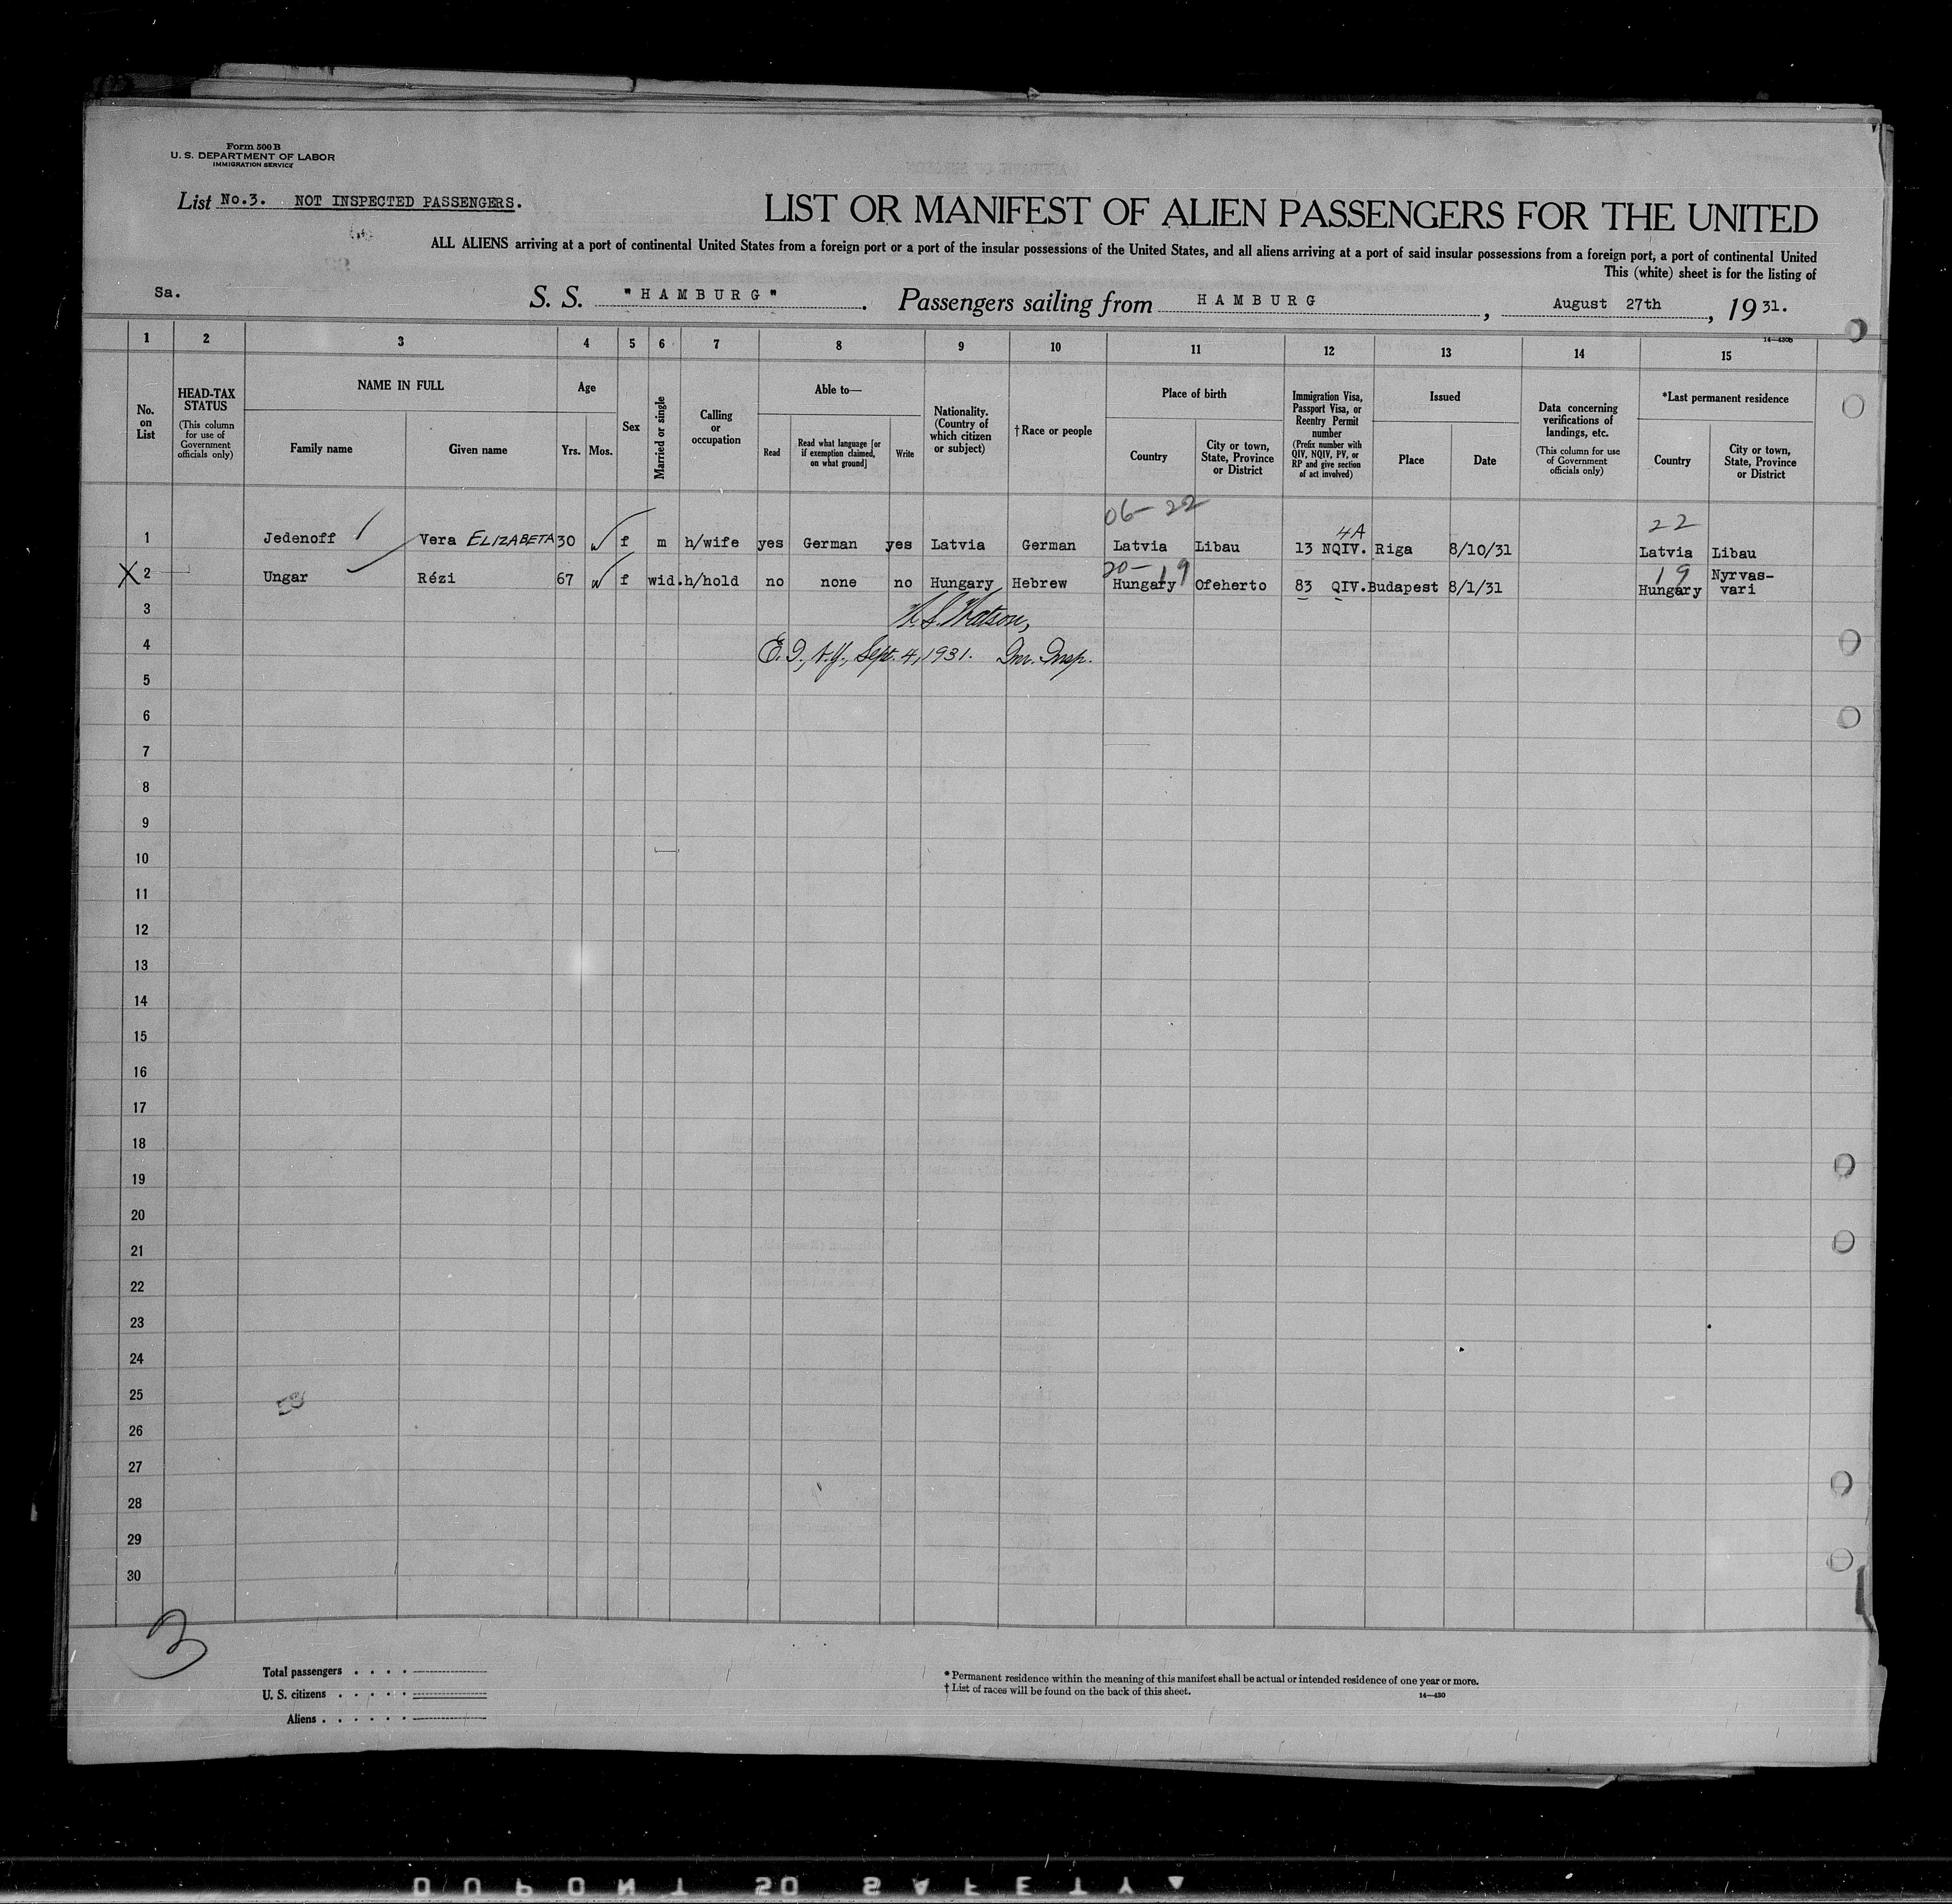 Form 500 B
U. S. DEPARTMENT OF LABOR
IMMIGRATION SERVICE
List No.3. NOT INSPECTED PASSENGERS.
LIST OR MANIFEST OF ALIEN PASSENGERS FOR THE UNITED
ALL ALIENS arriving at a port of continental United States from a foreign port or a port of the insular possessions of the United States, and all aliens arriving at a port of said insular possessions from a foreign port, a port of continental United
This (white) sheet is for the listing of
Sa.
S. S. "HAMBURG". Passengers sailing from HAMBURG, August 27th, 1931.
1 2 3 4 5 6 7 8 9 10 11 12 13 14 15
14—430b
No. on List
HEAD-TAX STATUS (This column for use of Government officials only)
NAME IN FULL
Family name
Given name
Age
Yrs. Mos.
Sex
Married or single
Calling or occupation
Able to—
Read
Read what language [or if exemption claimed, on what ground]
Write
Nationality. (Country of which citizen or subject)
†Race or people
Place of birth
Country
City or town, State, Province or District
Immigration Visa, Passport Visa, or Reentry Permit number (Prefix number with QIV, NQIV, PV, or RP and give section of act involved)
Issued
Place
Date
Data concerning verifications of landings, etc. (This column for use of Government officials only)
*Last permanent residence
Country
City or town, State, Province or District
06-22 4A 22
1 Jedenoff Vera ELIZABETA 30 f m h/wife yes German yes Latvia German Latvia Libau 13 NQIV. Riga 8/10/31 Latvia Libau
20-19 19
X 2 Ungar Rézi 67 f wid. h/hold no none no Hungary Hebrew Hungary Ofeherto 83 QIV. Budapest 8/1/31 Hungary Nyrvas-vari
3 Watson,
4 E. I., N.Y., Sept. 4, 1931. Im. Insp.
5
6
7
8
9
10
11
12
13
14
15
16
17
18
19
20
21
22
23
24
25
26
27
28
29
30
3
Total passengers . . . .
U. S. citizens . . . . .
Aliens . . . . . .
* Permanent residence within the meaning of this manifest shall be actual or intended residence of one year or more.
† List of races will be found on the back of this sheet.
14—430
DUPONT SO SAFETY